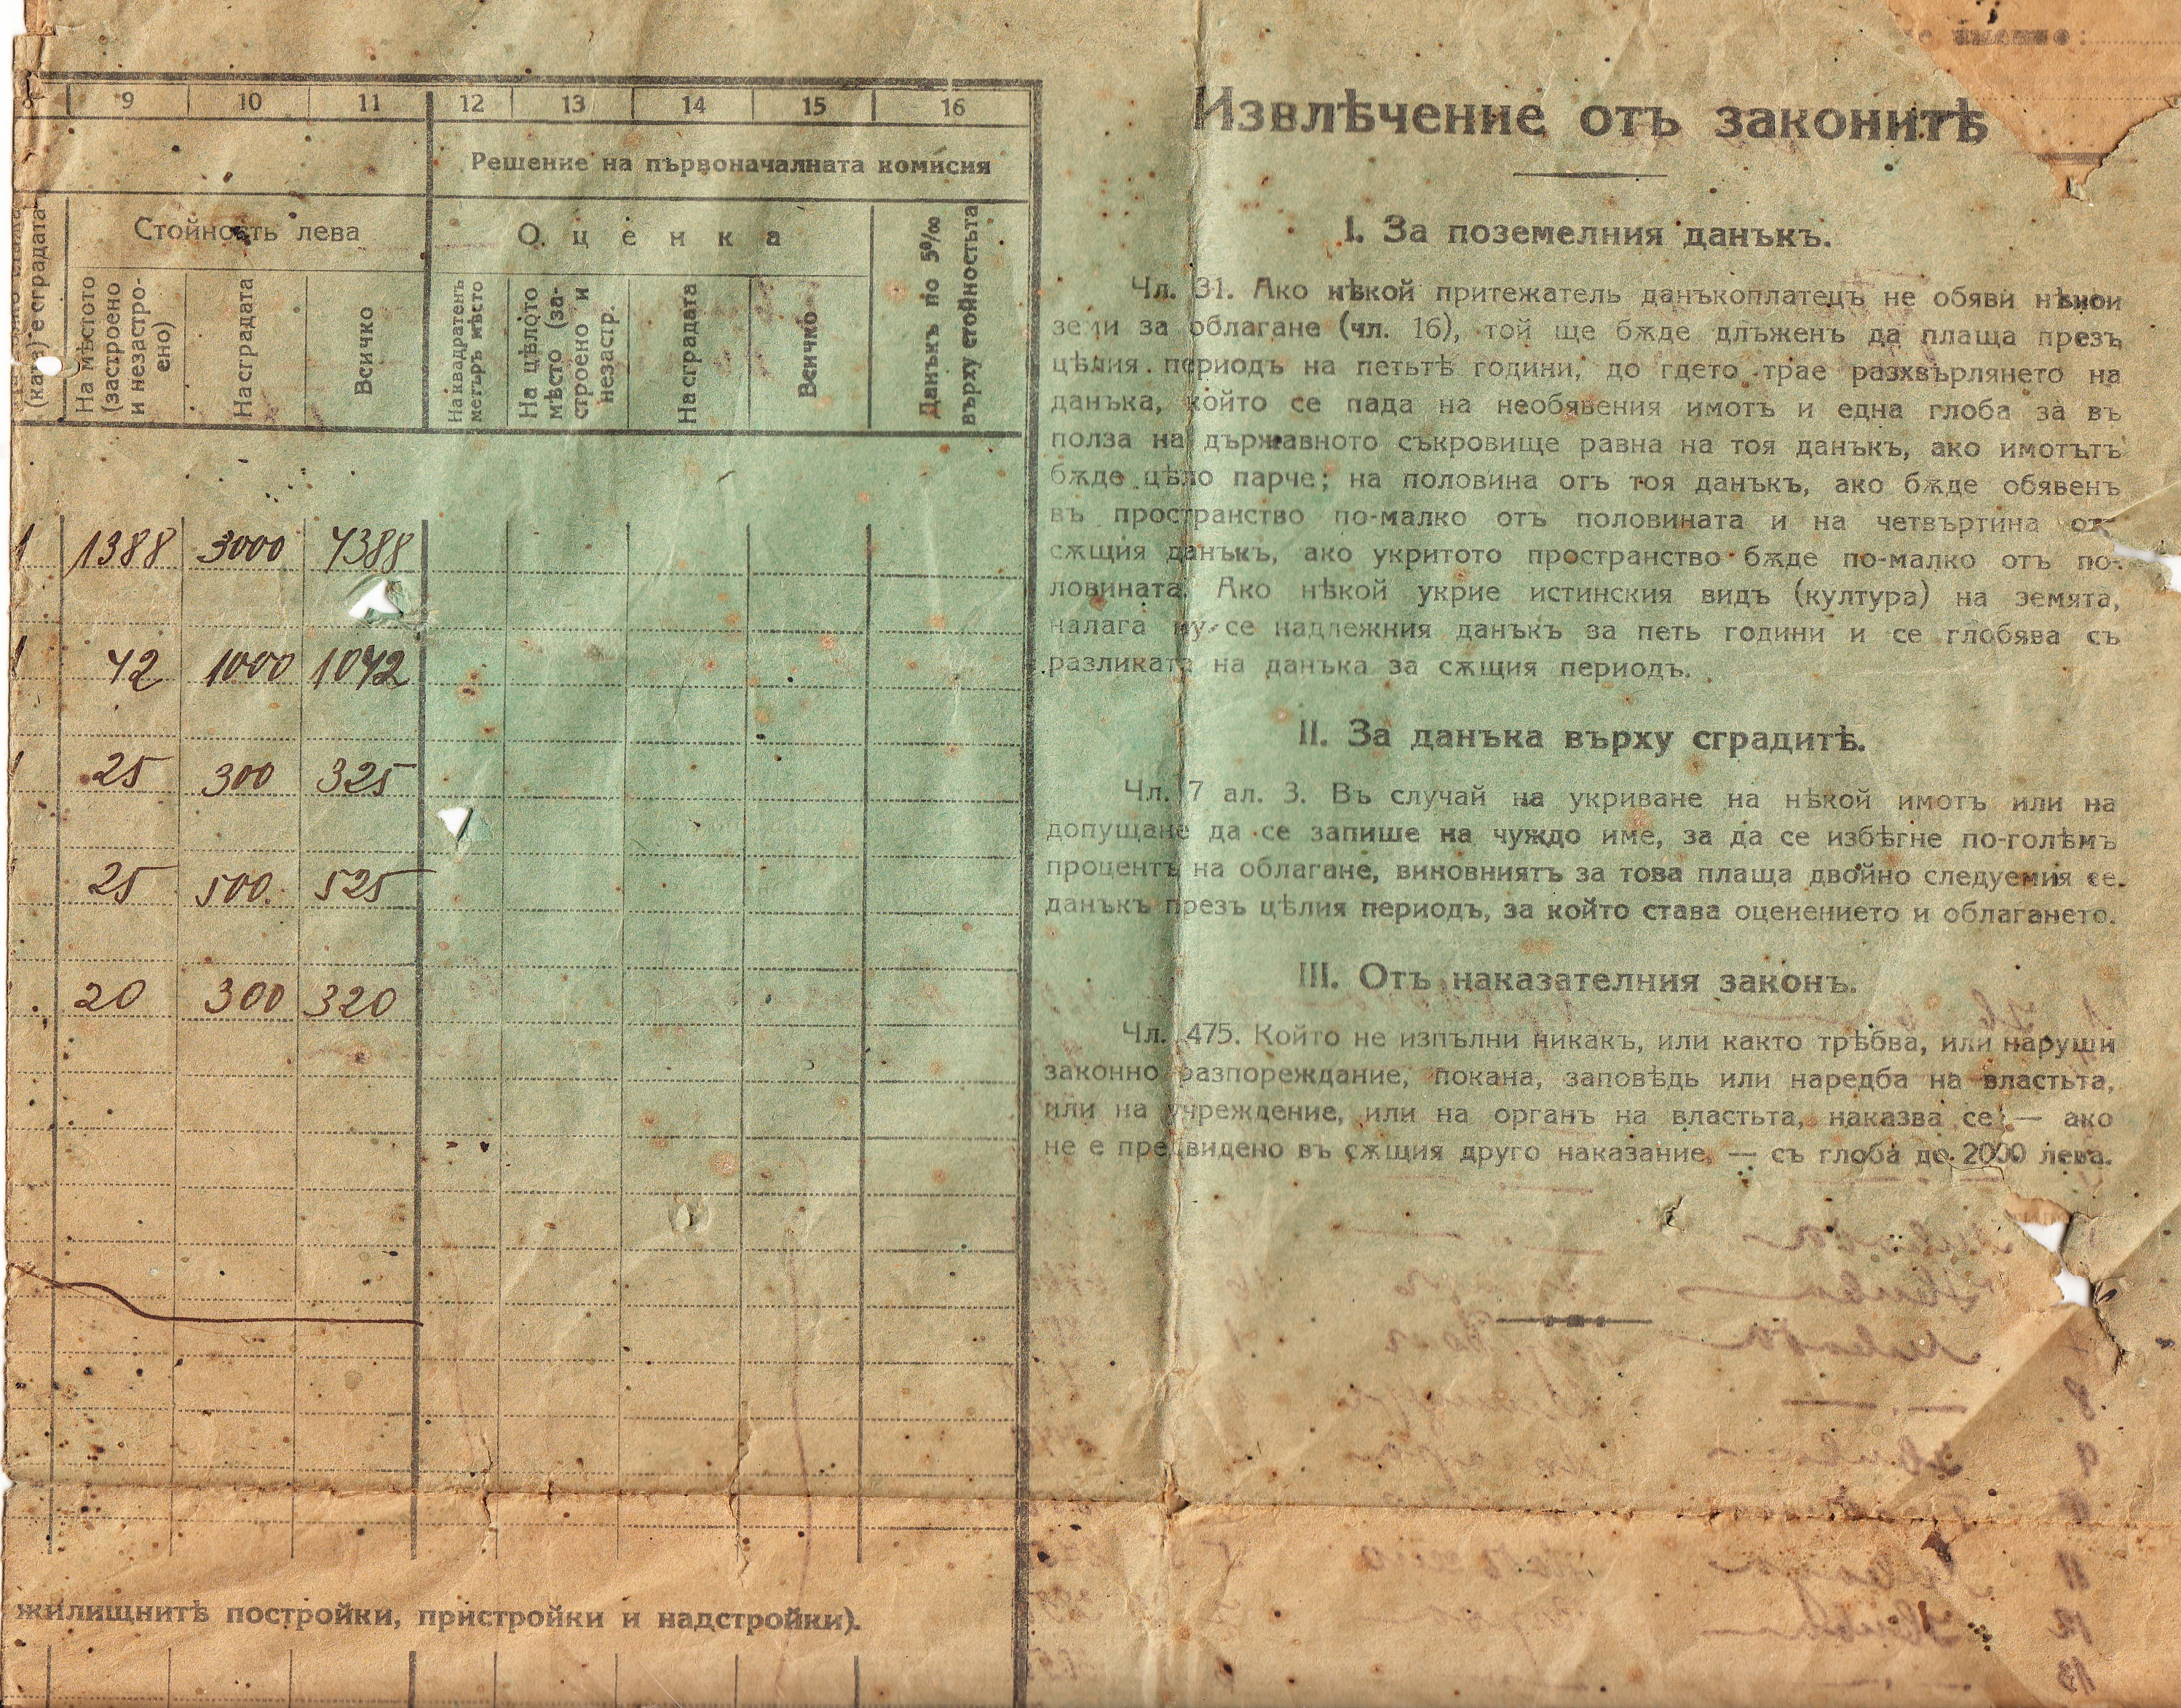 9 10 11 12 13 14 15 16
Решение на първоначалната комисия
Стойность лева
Оценка
(каза) е сградата
На мѣстото
(застроено
и незастро-
ено)
На сградата
Всичко
На квадратенъ
метъръ мѣсто
На цѣлото
мѣсто (за-
строено и
незастр.
На сградата
Всичко
Данъкъ по 5‰
върху стойностьта
1 1388 3000 4388
1 42 1000 1042
25 300 325
25 500 525
20 300 320
жилищнитѣ постройки, пристройки и надстройки).
Извлѣчение отъ законитѣ
I. За поземелния данъкъ.
Чл. 31. Ако нѣкой притежатель данъкоплатецъ не обяви нѣкои
земи за облагане (чл. 16), той ще бѫде длъженъ да плаща презъ
цѣлия периодъ на петьтѣ години, до гдето трае разхвърлянето на
данъка, който се пада на необявения имотъ и една глоба за въ
полза на държавното съкровище равна на тоя данъкъ, ако имотътъ
бѫде цѣло парче; на половина отъ тоя данъкъ, ако бѫде обявенъ
въ пространство по-малко отъ половината и на четвъртина отъ
сѫщия данъкъ, ако укритото пространство бѫде по-малко отъ по-
ловината. Ако нѣкой укрие истинския видъ (култура) на земята,
налага му се надлежния данъкъ за петь години и се глобява съ
разликата на данъка за сѫщия периодъ.
II. За данъка върху сградитѣ.
Чл. 7 ал. 3. Въ случай на укриване на нѣкой имотъ или на
допущане да се запише на чуждо име, за да се избѣгне по-голѣмъ
процентъ на облагане, виновниятъ за това плаща двойно следуемия се
данъкъ презъ цѣлия периодъ, за който става оценението и облагането.
III. Отъ наказателния законъ.
Чл. 475. Който не изпълни никакъ, или както трѣбва, или наруши
законно разпореждание, покана, заповѣдь или наредба на властьта,
или на учреждение, или на органъ на властьта, наказва се — ако
не е предвидено въ сѫщия друго наказание, — съ глоба до 2000 лева.